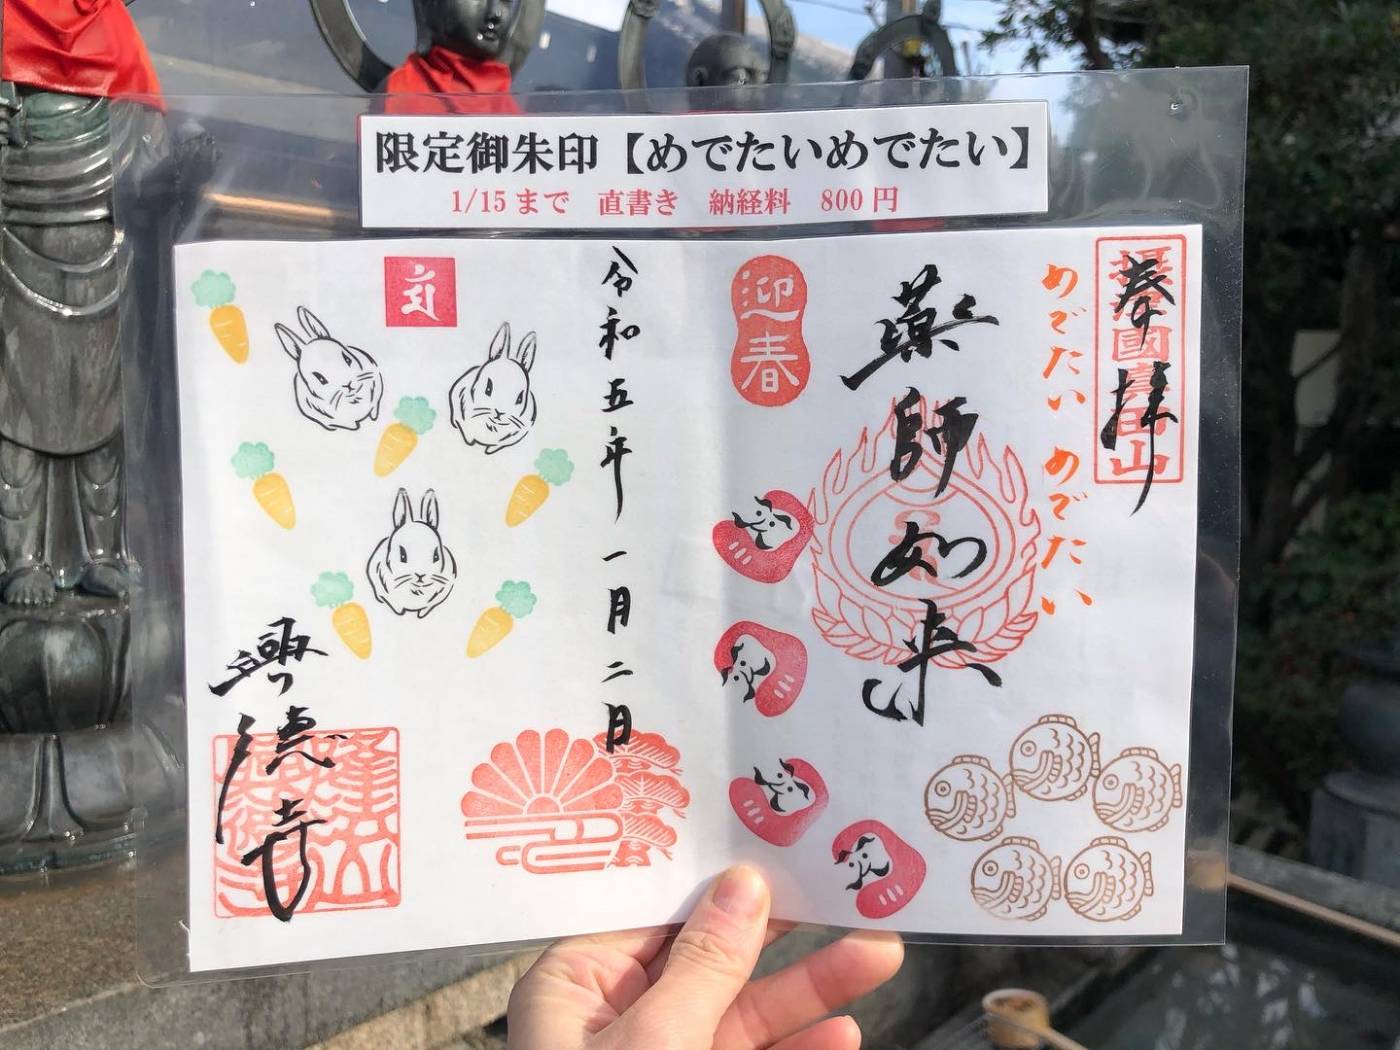 限定御朱印【めでたいめでたい】
1/15まで 直書き 納経料 800円
奉拝
摂津國真田山
めでたい めでたい
薬師如来
迎春
令和五年一月二日
興徳寺